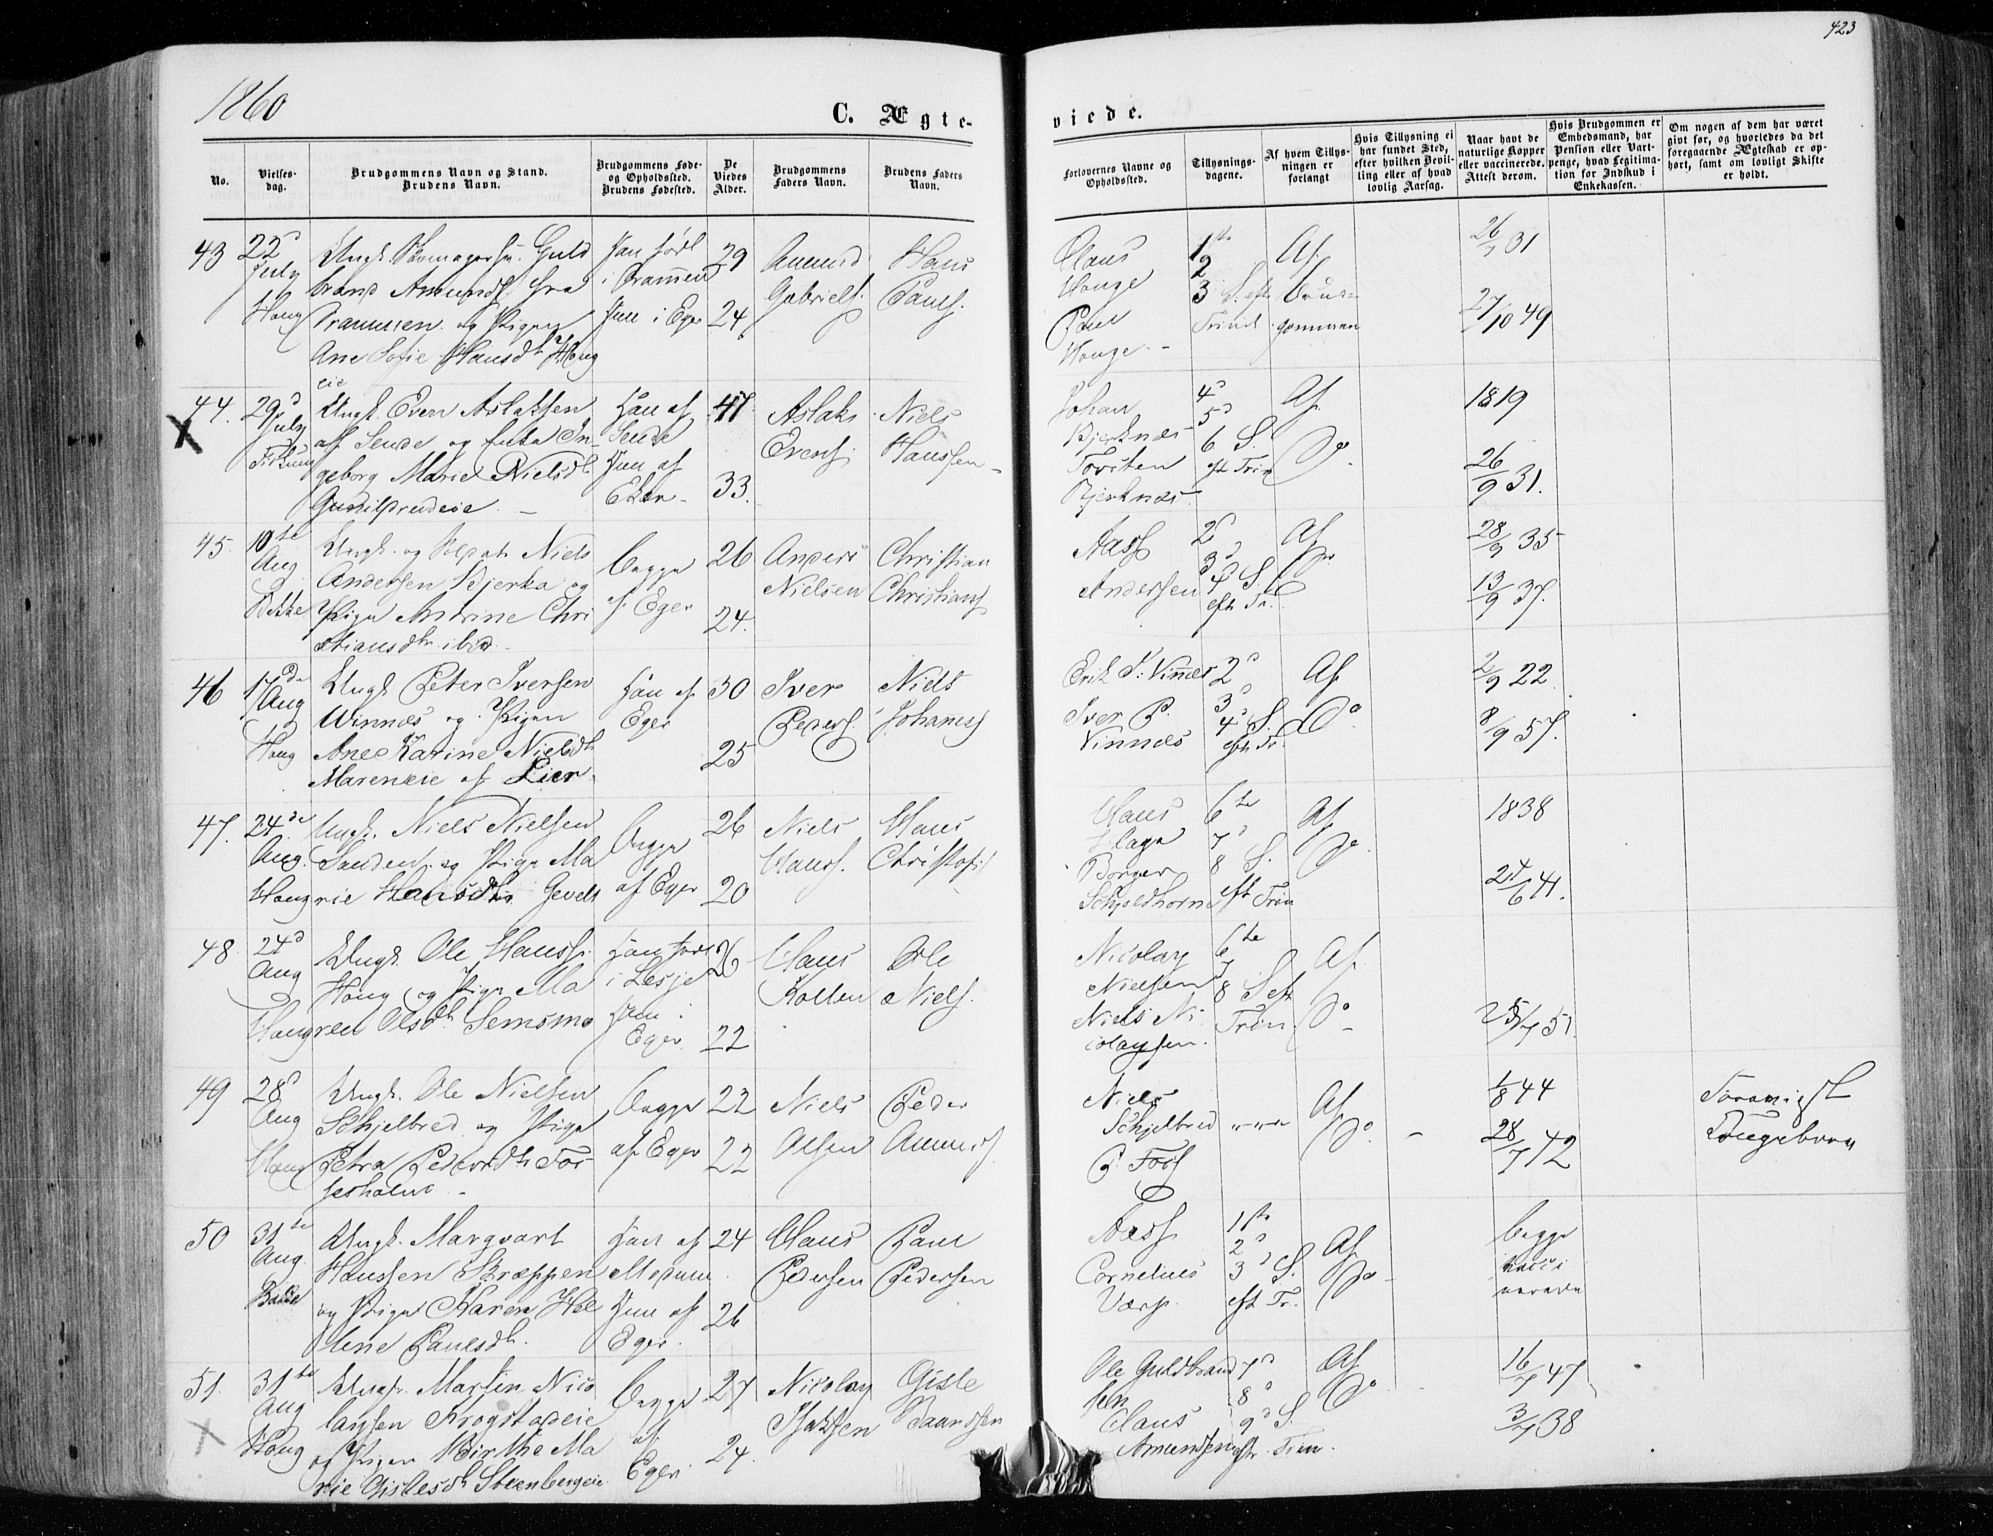 423
1860
C. Ægte-
viede.
No.
Vielses-
dag.
Brudgommens Navn og Stand.
Brudens Navn.
Brudgommens Føde-
og Opholdssted.
Brudens Fødested.
De
Viedes
Alder.
Brudgommens
Faders Navn.
Brudens Faders
Navn.
Forlovernes Navne og
Opholdssted.
Tillysnings-
dagene.
Af hvem Tillys-
ningen er
forlangt
Hvis Tillysning ei
har fundet Sted,
efter hvilken Bevil-
ling eller af hvad
lovlig Aarsag.
Naar havt de
naturlige Kopper
eller vaccinerede.
Attest derom.
Hvis Brudgommen er
Embedsmand, har
Pension eller Vart-
penge, hvad Legitima-
tion for Indskud i
Enkekassen.
Om nogen af dem har været
gift før, og hvorledes da det
foregaaende Ægteskab er op-
hørt, samt om lovligt Skifte
er holdt.
43
22d
July
Houg
Ungk. Guld
brand Amunds. fra
Drammen og Pigen
Ane Sofie Hansdtr Houg
eie
Han født
i Drammen
Hun i Eger
29
24
Amund
Gabriels.
Hans
Pauls.
Claus
Houge
Paul
Houge
1ste
2
3 S. eft
Trinit
Af
Brud-
gommen
26/7 31
27/10 49
44.
29d
July
Fiskum
Ungk. Even Aslaksen
af Sende og Enke In-
geborg Marie Nielsdtr
Han af
Sende
Hun af
Eker
47
33.
Aslak
Evens.
Niels
Hanssen
Johan
Bjerknæs
Torsten
Bjerknæs
4d
5d
6 S.
eft Trin
Af
Do
1819
26/9 31.
45.
10de
Aug
Bakke
Ungk. og Niels
Andersen Bjerka og
Pige Antrine Chri
stiansdtr ibid.
Begge
af Eger
26
24.
Anders
Nielsen
Christian
Christians
Aas
Andersen
2d
3d
4d S.
eft Tr.
Af
Do
28/9 35
13/9 37.
46
17de
Aug
Houg
Ungk. Peter Iversen
Winnæs og Pigen
Ane Karine Nielsdtr
Mareneie af Lier.
Han af
Eger
30
25
Iver
Peders
Niels
Johanns
Erik P. Vinnæs
Iver P.
Vinnæs
2d
3d
4d S.
eft Tr.
Af
Do
2/9 22
8/9 57.
47.
24de
Aug.
Houg
Ungk. Niels Nielsen
Sanden og Pige Ma
rie Hansdtr Gevelt
Begge
af Eger
26
20
Niels
Hans.
Hans
Christofs
Hans
Haga
Borger
Schjoldhorne
6te
7d
8 S.
eft Trin
Af
Do
1838
24/6 41.
48.
24d
Aug
Houg
Ungk. Ole Hanss.
Houg og Pige Ma
ren Olsdtr Semsmo
Han født
i Lesje
Hun i
Eger
26
22
Hans
Kolten
Ole
Niels.
Nicolay
Nielsen
Niels Ni
colaysen.
6te
7
8 S eft
Trin
Af
Do
51.
49
28d
Aug
Houg
Ungk. Ole Nielsen
Schjelbred og Pige
Petra Pedersdtr Fos-
sesholm
Begge
af Eger
22
22
Niels
Olsen
Peder
Amunds.
Niels
Schjelbred
P. Foss
Af
Do
1/8 44
28/7 42
50
31te
Aug.
Bakke
Ungk. Margvart
Hanssen Skræppen
og Pige Karen He
lene Paulsdtr.
Han af
Modum
Hun af
Eger.
24
26
Hans
Pedersen
Paul
Pedersen
Aas
Cornelius
Værp.
1ste
2d
3d S.
eft Tr.
Af
Do
begge
51.
31te
Aug
Houg
Ungk. Martin Nico
laysen Krogstadeie
og Pigen Birthe Ma
rie Gislesdtr Steenbergeie
Begge
af
Eger.
27
24.
Nicolay
Isaksen
Gisle
Baardsen
Ole Guldbrand
sen
Claus
Amundsen
7d
8d
9d S.
eft. Trin.
Af
Do
16/7 47
3/7 38